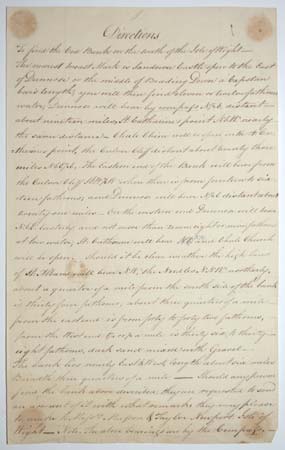 Directions
To find the Cod Bank on the south of the Isle of Wight —
The nearest breast Mark is Sandown Castle open to the East
of Dunnose or the middle of Brading Down a Capstan
Bar's length, you will then find eleven or twelve fathoms
water, Dunnose will bear by compass distant
about nineteen miles, St. Catharine's point nearly
the same distance. Chale Church will be open with St. Cath
arine's point, the Culver Cliff distant about twenty three
miles The Eastern end of the Bank will bear from
the Culver Cliff where there is from fourteen to six
teen fathoms, and Dunnose will bear distant about
twenty one miles. On the western end Dunnose will bear
easterly and not more than seven eight or nine fathoms
at low water, St. Catharine's will bear and Chale Church
will be open. Should it be clear weather the high land
of St. Albans will bear the Needles northerly,
about a quarter of a mile from the south side of the bank
is thirty four fathoms, about three quarters of a mile
from the east end is from forty to forty two fathoms,
from the West end a mile is thirty six to thirty
eight fathoms, dark sand mixed with Gravel.
The bank lies nearly East & West, length about six miles
Breadth three quarters of a mile — Should any person
find the bank above described, they are requested to send
an account of it with what remarks they may please
to make to Mess.rs & Taylor Newport Isle of
Wight — Note. The above bearings are by the Compass —